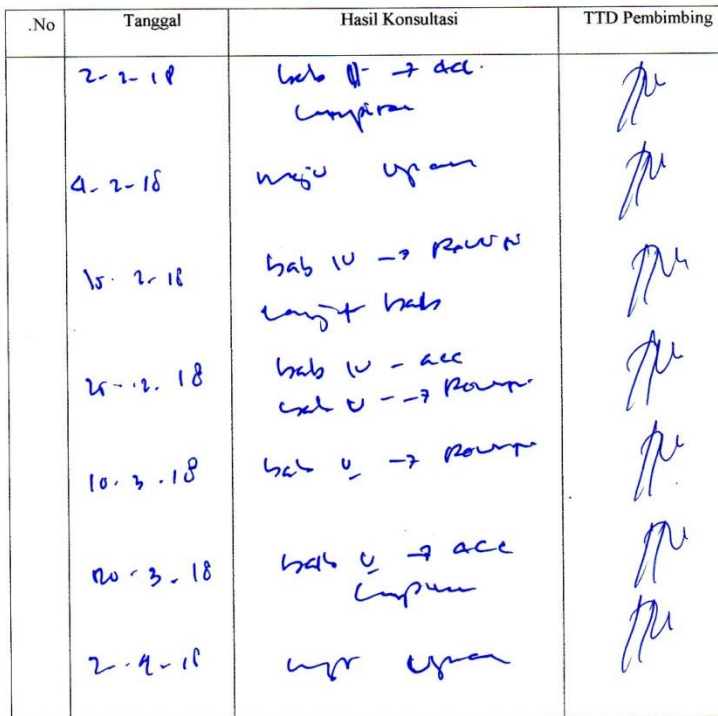 .No Tanggal Hasil Konsultasi TTD Pembimbing
2-2-18 bab → acc.
Lampiran
4-2-18 maju ujian
15. 2-18 bab IV → Revisi
Lanjut bab
25-.2. 18 bab IV - acc
bab V --> Revisi
10. 3 .18 bab V → Revisi
20-3-18 bab V → acc
Lampiran
2-.4-18 maju ujian